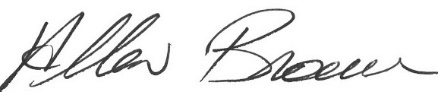 Allen Brown